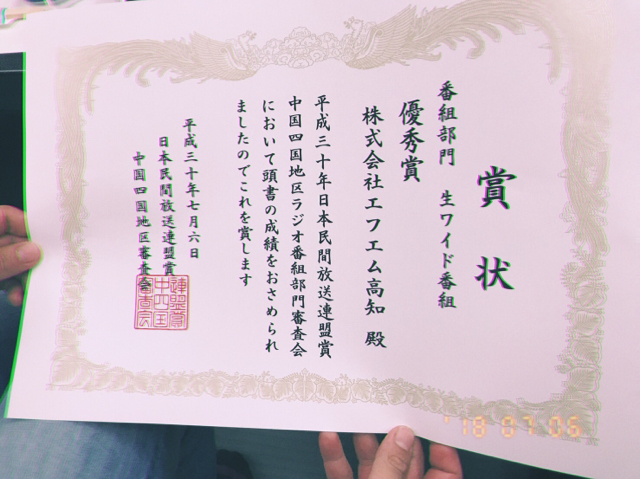 賞状
番組部門 生ワイド番組
優秀賞
株式会社エフエム高知 殿
平成三十年日本民間放送連盟賞
中国四国地区ラジオ番組部門審査会
において頭書の成績をおさめられ
ましたのでこれを賞します
平成三十年七月六日
日本民間放送連盟賞
中国四国地区審査会
連盟賞
中四国
審査会
'18 07 06